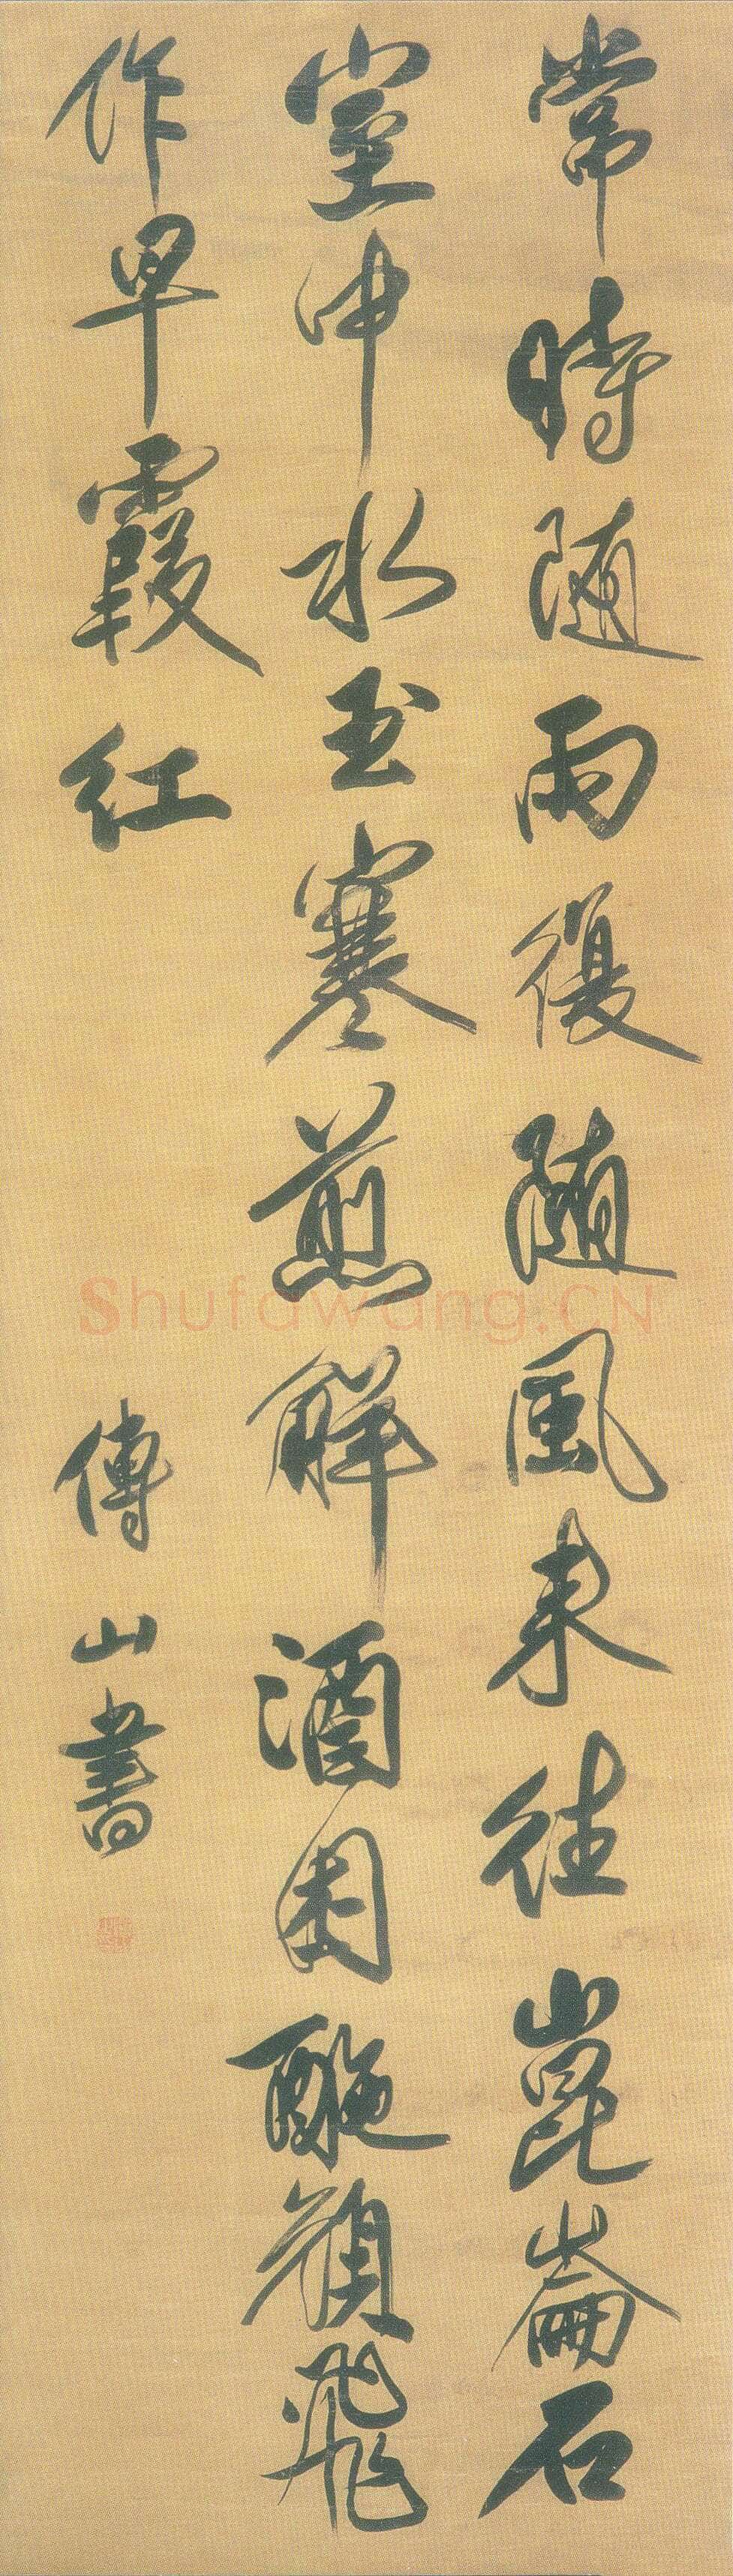 常時随雨復随風来往崑崙石
室中水玉寒煎解酒困酡顔飛
作早霞紅
傅山書
Shufawang.CN